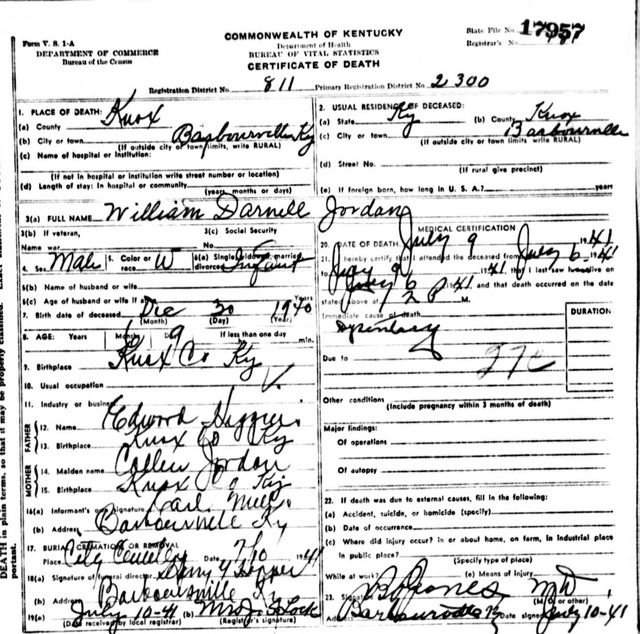 COMMONWEALTH OF KENTUCKY
State File No. 17957
Form V. S. 1-A
Department of Health
Registrar's No.
DEPARTMENT OF COMMERCE
BUREAU OF VITAL STATISTICS
Bureau of the Census
CERTIFICATE OF DEATH
Registration District No. 811 Primary Registration District No. 2300
1. PLACE OF DEATH:
(a) County Knox
(b) City or town Barbourville Ky
(If outside city or town limits, write RURAL)
(c) Name of hospital or institution:
(If not in hospital or institution write street number or location)
(d) Length of stay: In hospital or community
(years, months or days)
2. USUAL RESIDENCE OF DECEASED:
(a) State Ky (b) County Knox
(c) City or town Barbourville
(If outside city or town limits write RURAL)
(d) Street No.
(If rural give precinct)
(e) If foreign born, how long in U. S. A.? years
3(a) FULL NAME William Darnell Jordan
3(b) If veteran,
Name war
3(c) Social Security
No.
4. Sex Male 5. Color or race W 6(a) Single, widowed, married divorced Infant
6(b) Name of husband or wife
6(c) Age of husband or wife if Years
7. Birth date of deceased Dec 30 1940
(Month) (Day) (Year)
8. AGE: Years Months Days If less than one day
9 min.
9. Birthplace Knox Co Ky
10. Usual occupation
11. Industry or business
FATHER
12. Name Edward
13. Birthplace Knox Co Ky
MOTHER
14. Maiden name Jordan
15. Birthplace Knox Co Ky
16(a) Informant's own signature Carl
(b) Address Barbourville Ky
17. BURIAL, CREMATION OR REMOVAL
Place City Cemetery Date 7/10 1941
18(a) Signature of funeral director Hopper
(b) Address Barbourville Ky
19(a) July 10-41 (b) Mrs
(Date received by local registrar) (Registrar's signature)
MEDICAL CERTIFICATION
20. DATE OF DEATH July 9 1941
21. I hereby certify that I attended the deceased from July 6 1941
to July 9 1941, that I last saw alive on
July 6 1941 and that death occurred on the date
stated above at P M.
Immediate cause of death
DURATION
Due to
27c
Other conditions
(Include pregnancy within 3 months of death)
Major findings:
Of operations
Of autopsy
22. If death was due to external causes, fill in the following:
(a) Accident, suicide, or homicide (specify)
(b) Date of occurrence
(c) Where did injury occur? In or about home, on farm, in industrial place
in public place?
(Specify type of place)
While at work? (e) Means of injury
23. Signature Jones MD
(M.D. or other)
Address Barbourville Ky Date signed July 10-41
DEATH in plain terms, so that it may be properly classified.